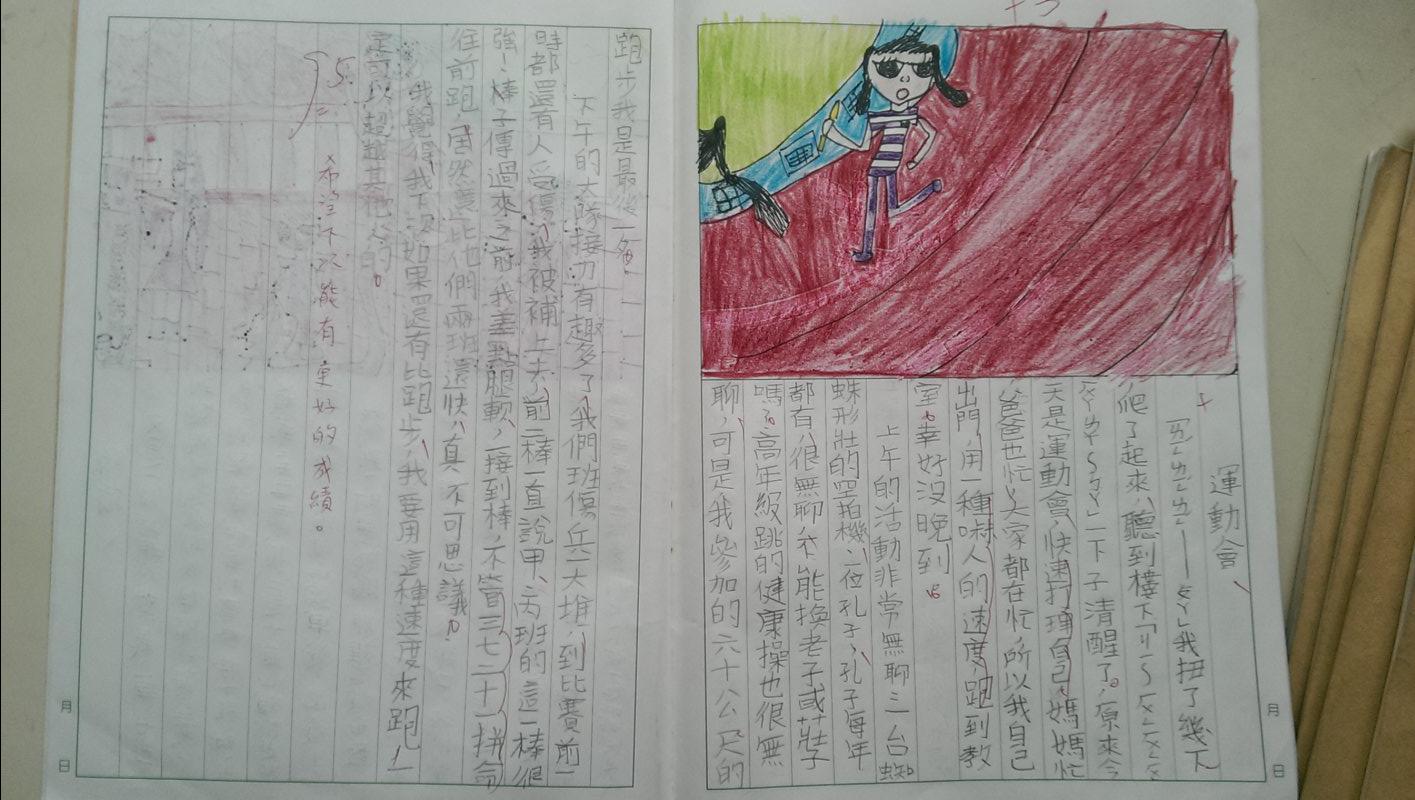 運動會
「ㄤˊㄤˊㄤˊ——ㄑㄚˋ」我扭了幾下
爬了起來,聽到樓下「
一下子清醒了。原來今
天是運動會,快速打理自己,媽媽忙
爸爸也忙,大家都在忙,所以我自己
出門,用一種嚇人的速度,跑到教
室,幸好沒晚到。
上午的活動非常無聊,三台蜘
蛛形壯的空拍機、一位孔子,孔子每年
都有,很無聊,不能換老子或莊子
嗎?高年級跳的健康操也很無
聊,可是我參加的六十公尺的
跑步我是最後一名。
下午的大隊接力有趣多了,我們班傷兵一大堆,到比賽前一
時都還有人受傷,我被補上去,前一棒一直說甲、丙班的這一棒很
強,棒子傳過來之前我差點腿軟,一接到棒,不管三七二十一拼命
往前跑,居然要比他們兩班還快,真不可思議。
我覺得我下次如果還有比跑步,我要用這種速度來跑,一
定可以超越其他人的。
95
希望下次能有更好的成績。
月
日
月
日